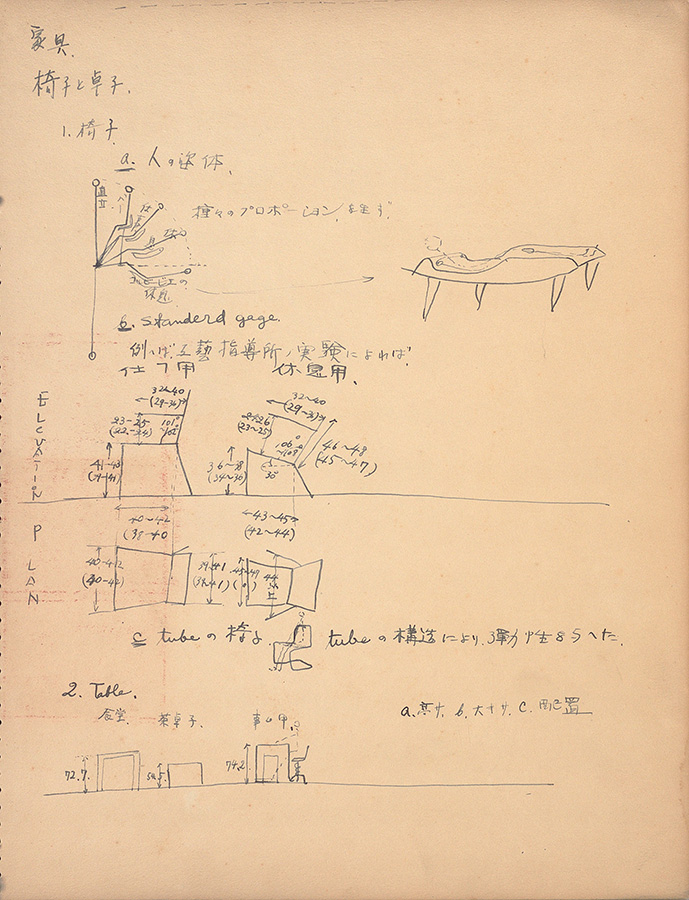 家具.
椅子と卓子.
1. 椅子
a. 人の姿体.
直立
種々のプロポーションを生ず.
休息
b. standerd gage.
例へば工藝指導所ノ実験によれば.
仕了用 休息用.
ELEVATION
32~40
(29-36)
23-25
(22-24)
41-43
(39-41)
32~40
(29-36)
106°
~108°
46~48
(45~47)
36~38
(34~36)
PLAN
40~42
(38-40)
43~45
(42~44)
40-42
c tubeの椅子. tubeの構造により、運動性を与へた.
2. Table.
食堂. 茶卓子. 事ム用.
a. 高サ. b. 大キサ. c. 配置
72.7.
74.2